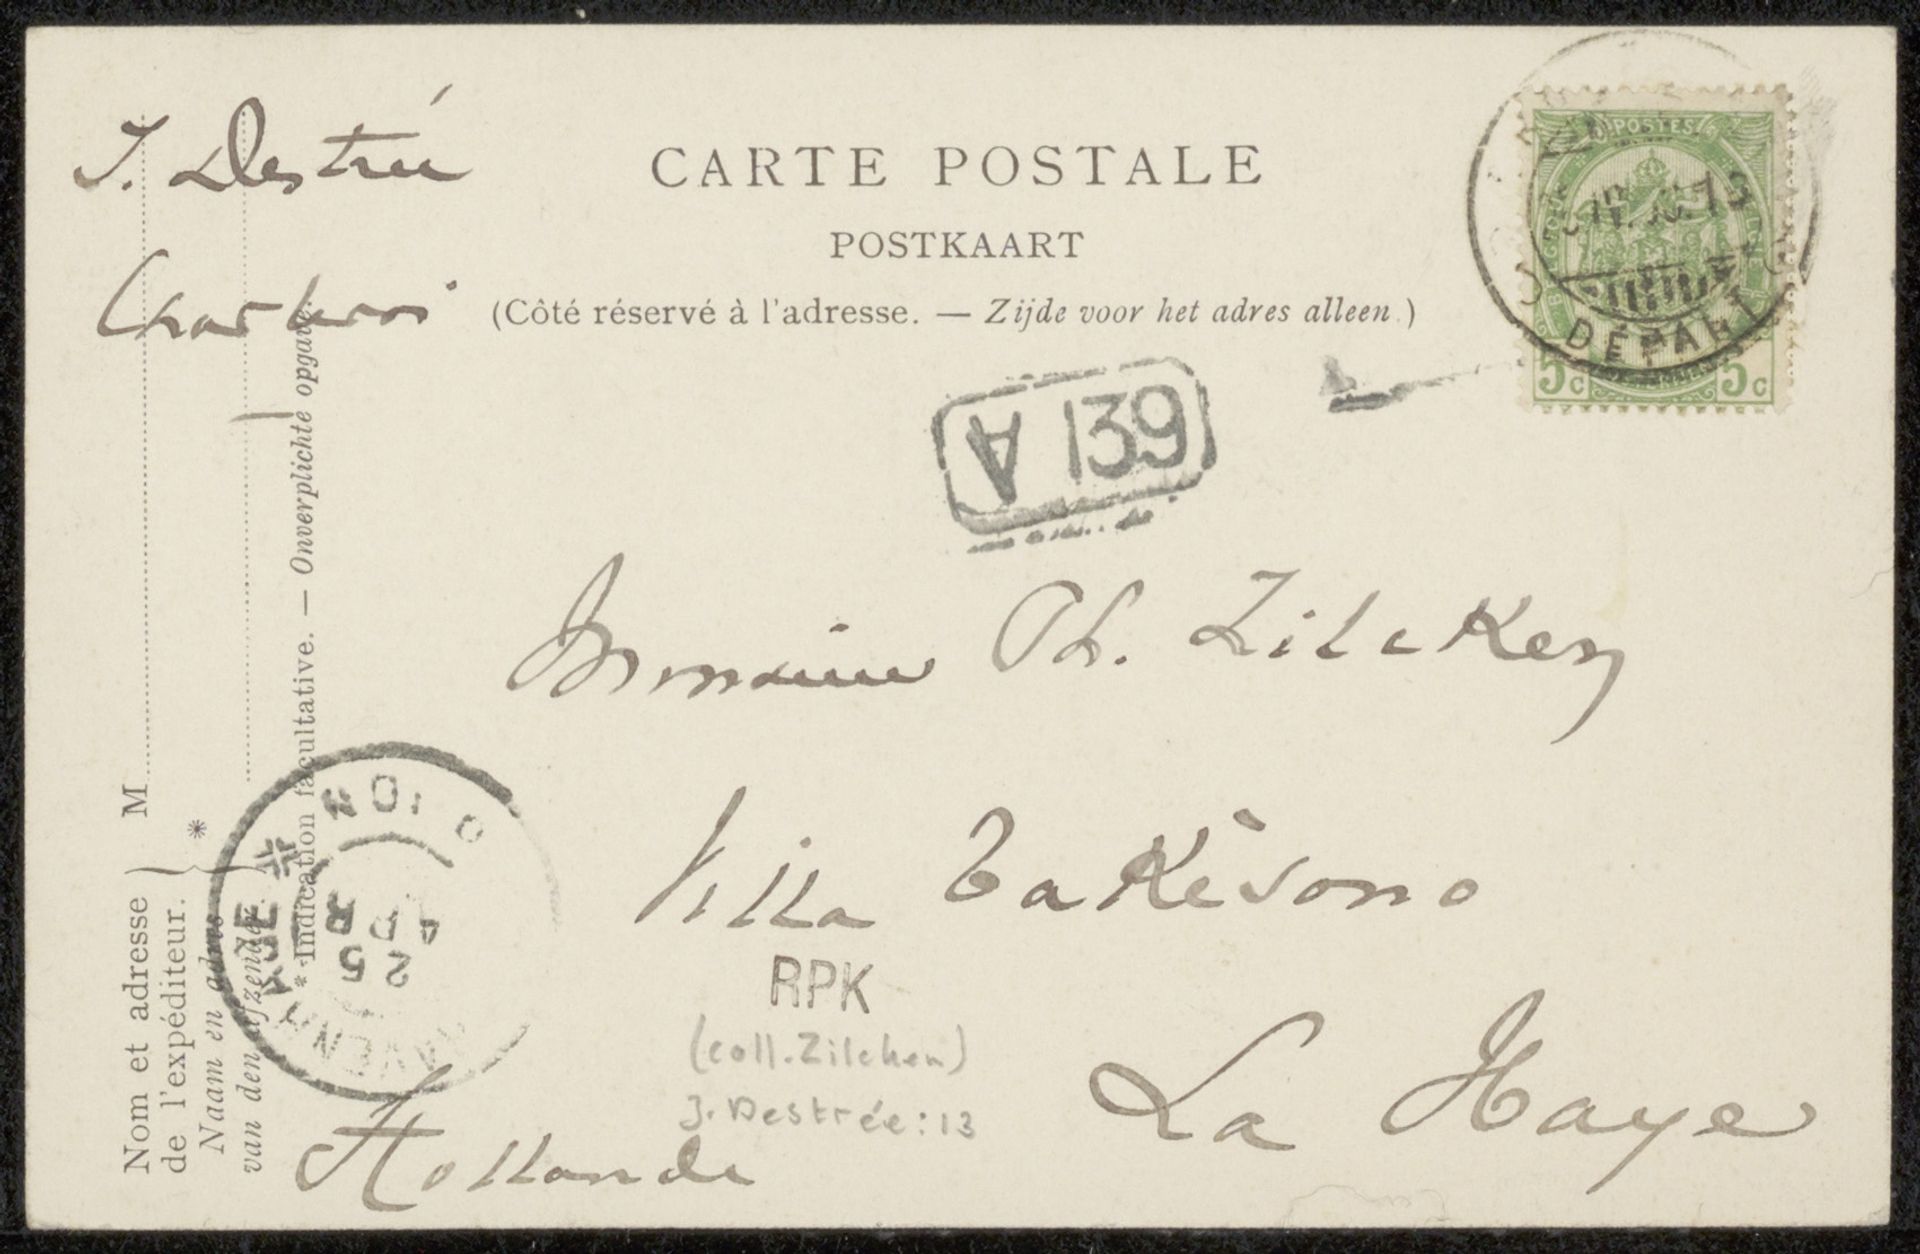 J. Destrée
Charleroi
CARTE POSTALE
POSTKAART
(Côté réservé à l'adresse. — Zijde voor het adres alleen.)
POSTES
DÉPART
5c 5c
V 139
Monsieur Ph. Zilcken
Villa Takèsono
La Haye
Hollande
RPK
(coll. Zilcken)
J. Destrée: 13
M
Nom et adresse
de l'expéditeur.
Naam en adres
van den afzender.
*
* Indication facultative. — Onverplichte opgade.